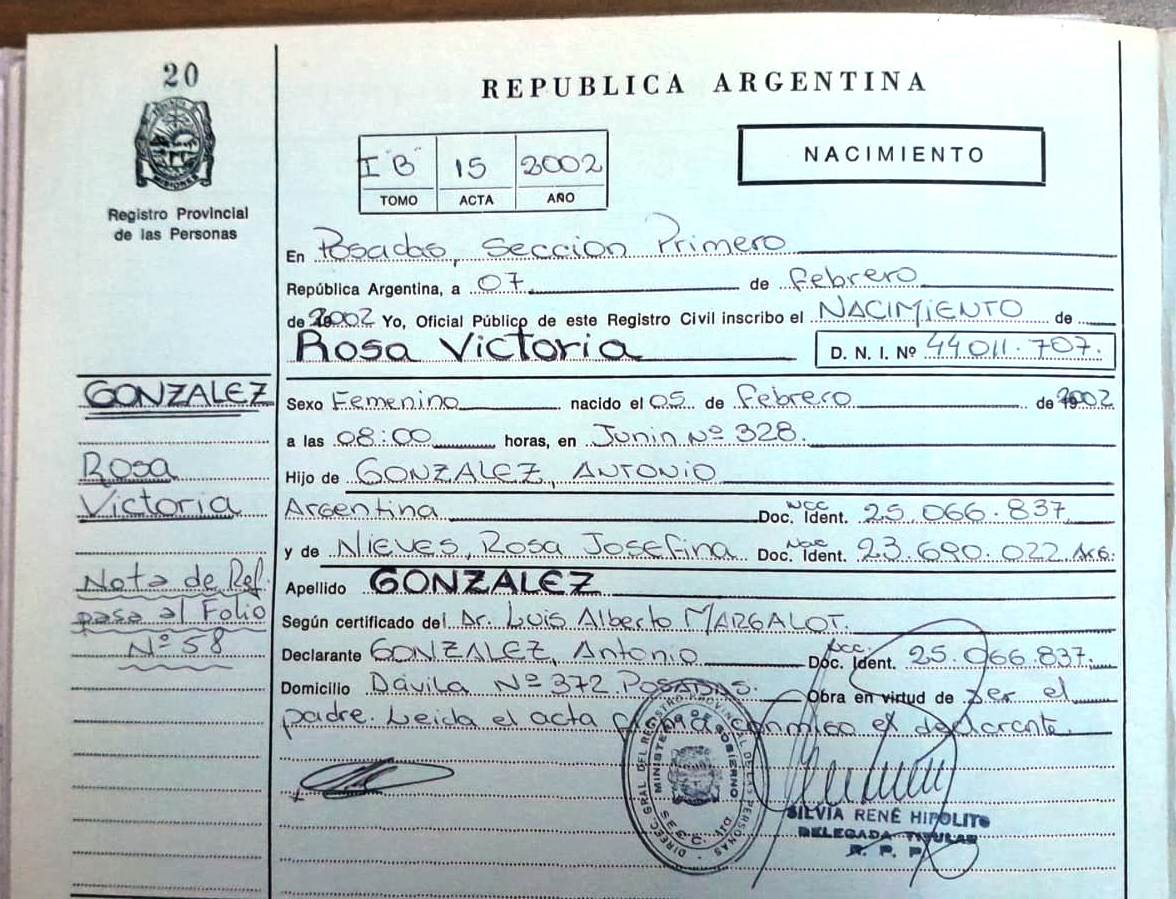 20
REPUBLICA ARGENTINA
I "B" 15 2002
TOMO ACTA AÑO
NACIMIENTO
MISIONES
Registro Provincial
de las Personas
En Posadas, Seccion Primero
República Argentina, a 07 de Febrero
de 2002 Yo, Oficial Público de este Registro Civil inscribo el NACIMIENTO de
Rosa Victoria D. N. I. Nº 44.011.707.
GONZALEZ
Sexo Femenino nacido el 05 de Febrero de 2002
a las 08:00 horas, en Junin Nº 328.
Rosa
Hijo de GONZALEZ, ANTONIO
Victoria
Argentina Doc. Ident. 25.066.837
y de Nieves, Rosa Josefina Doc. Ident. 23.690.022 Arg.
Nota de Ref.
Apellido GONZALEZ
pasa al Folio
Según certificado del Dr. Luis Alberto MARGALOT.
Nº 58
Declarante GONZALEZ, Antonio Doc. Ident. 25.066.837.
Domicilio Dávila Nº 372 POSADAS. Obra en virtud de ser el
padre. Leida el acta conmigo el declarante.
DIREC. GRAL. DEL REGISTRO PROVINCIAL DE LAS PERSONAS
MINISTERIO GOBIERNO
SILVIA RENÉ HIPOLITO
DELEGADA TITULAR
R. P. P.